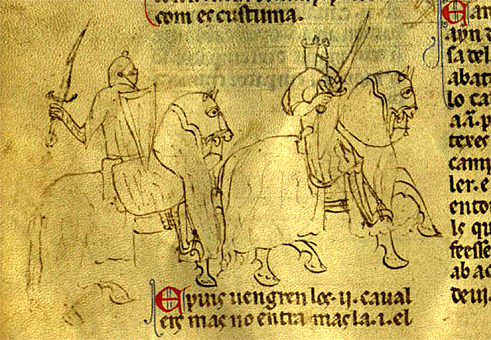 com es custuma.
E puis uengren los .ii. caual
ers mas no entra mas la .i. el
ayn d
sa del
abat
lo ca
texes
camp
ler. e
ento
ls qu
feesse
ab ac
de ui